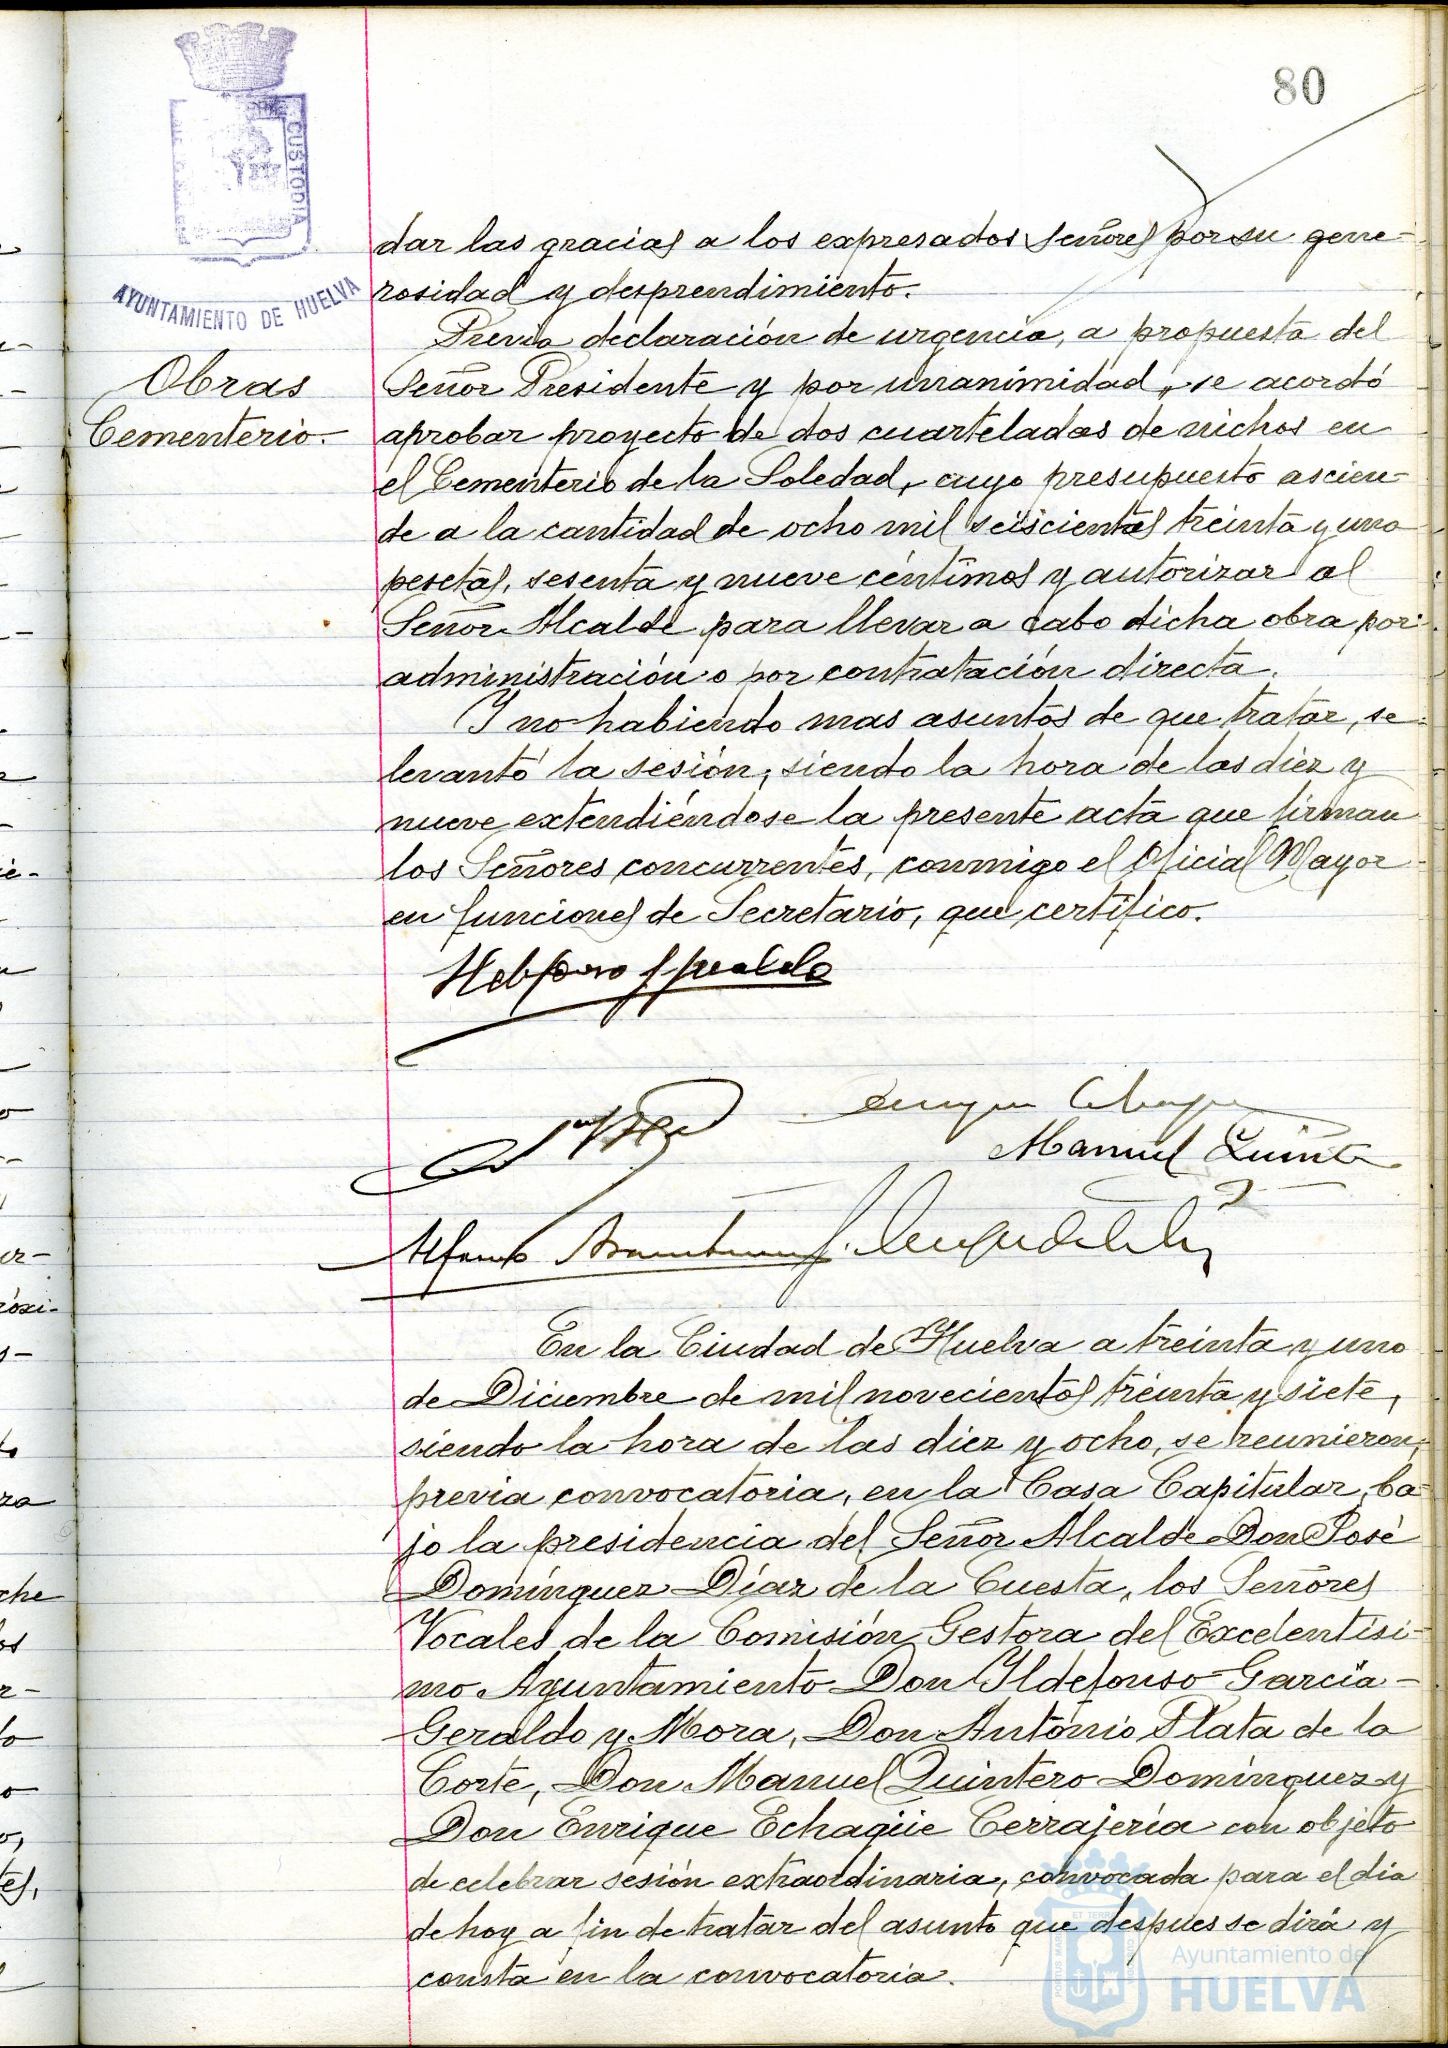 80
CUSTODIA
AYUNTAMIENTO DE HUELVA
dar las gracias a los expresados señores por su gene-
rosidad y desprendimiento.
Obras
Cementerio.
Previa declaración de urgencia, a propuesta del
Señor Presidente y por unanimidad, se acordó
aprobar proyecto de dos cuarteladas de nichos en
el Cementerio de la Soledad, cuyo presupuesto ascien-
de a la cantidad de ocho mil seiscientas treinta y una
pesetas, sesenta y nueve céntimos y autorizar al
Señor Alcalde para llevar a cabo dicha obra por
administración o por contratación directa.
Y no habiendo mas asuntos de que tratar, se
levantó la sesión, siendo la hora de las diez y
nueve extendiéndose la presente acta que firman
los Señores concurrentes, conmigo el Oficial Mayor
en funciones de Secretario, que certifico.
Manuel Quintero
Alfonso
En la Ciudad de Huelva a treinta y uno
de Diciembre de mil novecientos treinta y siete,
siendo la hora de las diez y ocho, se reunieron,
previa convocatoria, en la Casa Capitular, ba-
jo la presidencia del Señor Alcalde Don José
Domínguez Díaz de la Cuesta, los Señores
Vocales de la Comisión Gestora del Excelentísi-
mo Ayuntamiento Don Ildefonso García-
Geraldo y Mora, Don Antonio Plata de la
Corte, Don Manuel Quintero Domínguez y
Don Enrique Echagüe Cerrajería con objeto
de celebrar sesión extraordinaria, convocada para el dia
de hoy a fin de tratar del asunto que despues se dirá y
consta en la convocatoria.
Ayuntamiento de
HUELVA